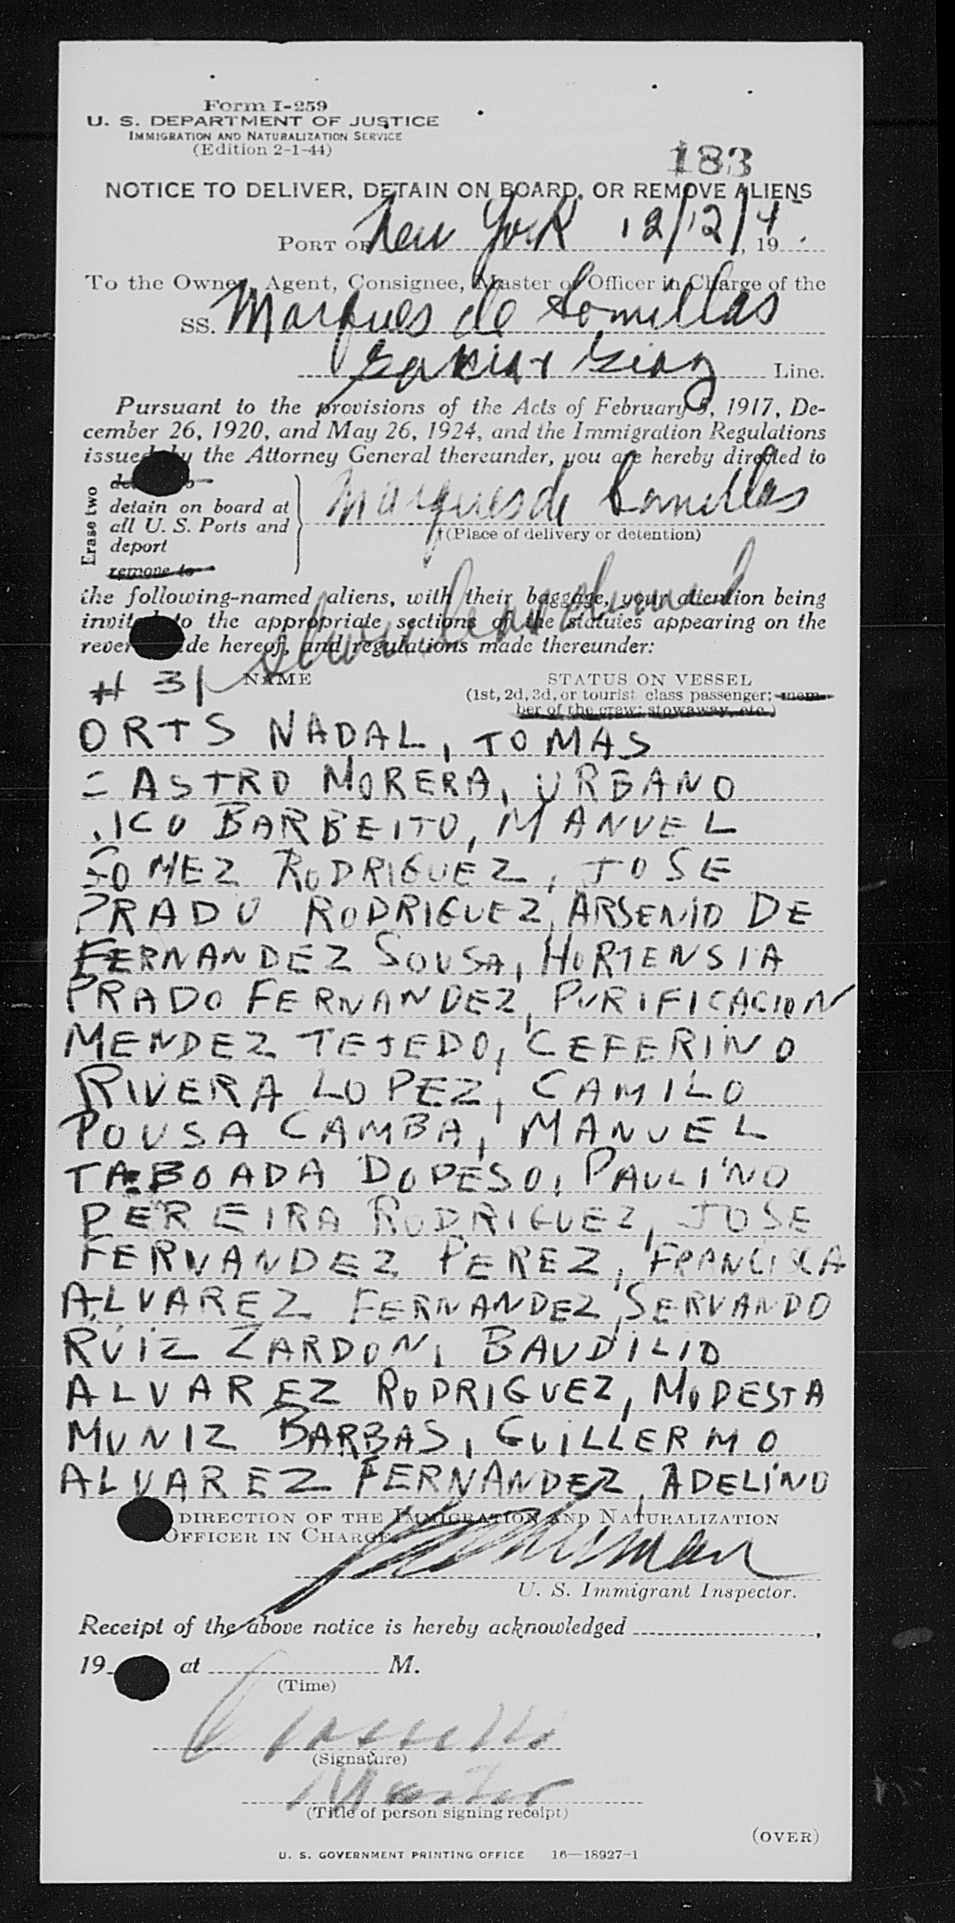 Form I-259
U. S. DEPARTMENT OF JUSTICE
IMMIGRATION AND NATURALIZATION SERVICE
(Edition 2-1-44)
183
NOTICE TO DELIVER, DETAIN ON BOARD, OR REMOVE ALIENS
PORT OF New York 12/12/45, 19
To the Owner, Agent, Consignee, Master or Officer in Charge of the
SS. Marques de Comillas
Garcia & Diaz Line.
Pursuant to the provisions of the Acts of February 5, 1917, De-
cember 26, 1920, and May 26, 1924, and the Immigration Regulations
issued by the Attorney General thereunder, you are hereby directed to
Erase two
detain on board at
all U. S. Ports and
deport
remove to
Marques de Comillas
(Place of delivery or detention)
the following-named aliens, with their baggage, your attention being
invited to the appropriate sections of the statutes appearing on the
reverse side hereof, and regulations made thereunder:
# 31 NAME
STATUS ON VESSEL
(1st, 2d, 3d, or tourist class passenger; mem-
ber of the crew; stowaway, etc.)
ORTS NADAL, TOMAS
CASTRO MORERA, URBANO
ICO BARBEITO, MANUEL
GOMEZ RODRIGUEZ, JOSE
PRADO RODRIGUEZ, ARSENIO DE
FERNANDEZ SOUSA, HORTENSIA
PRADO FERNANDEZ, PURIFICACION
MENDEZ TEJEDO, CEFERINO
RIVERA LOPEZ, CAMILO
POUSA CAMBA, MANUEL
TABOADA DOPESO, PAULINO
PEREIRA RODRIGUEZ, JOSE
FERNANDEZ PEREZ, FRANCISCA
ALVAREZ FERNANDEZ, SERVANDO
RUIZ ZARDON, BAUDILIO
ALVAREZ RODRIGUEZ, MODESTA
MUNIZ BARBAS, GUILLERMO
ALVAREZ FERNANDEZ, ADELINO
DIRECTION OF THE IMMIGRATION AND NATURALIZATION
OFFICER IN CHARGE
U. S. Immigrant Inspector.
Receipt of the above notice is hereby acknowledged ,
19 at M.
(Time)
(Signature)
Master
(Title of person signing receipt)
(OVER)
U. S. GOVERNMENT PRINTING OFFICE 16—18927-1